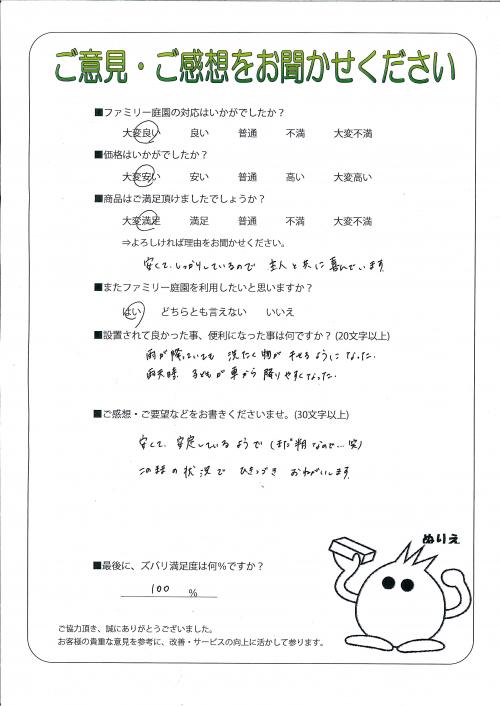 ご意見・ご感想をお聞かせください
■ファミリー庭園の対応はいかがでしたか？
大変良い 良い 普通 不満 大変不満
■価格はいかがでしたか？
大変安い 安い 普通 高い 大変高い
■商品はご満足頂けましたでしょうか？
大変満足 満足 普通 不満 大変不満
⇒よろしければ理由をお聞かせください。
安くて、しっかりしているので 主人と共に喜んでいます。
■またファミリー庭園を利用したいと思いますか？
はい どちらとも言えない いいえ
■設置されて良かった事、便利になった事は何ですか？(20文字以上)
雨が降っていても 洗たく物が干せるようになった。
雨天時、子どもが車から降りやすくなった。
■ご感想・ご要望などをお書きくださいませ。(30文字以上)
安くて、安定しているようで (まだ なので…笑)
このままの状況で ひきつづき おねがいします。
■最後に、ズバリ満足度は何％ですか？
100 %
ぬりえ
ご協力頂き、誠にありがとうございました。
お客様の貴重な意見を参考に、改善・サービスの向上に活かして参ります。